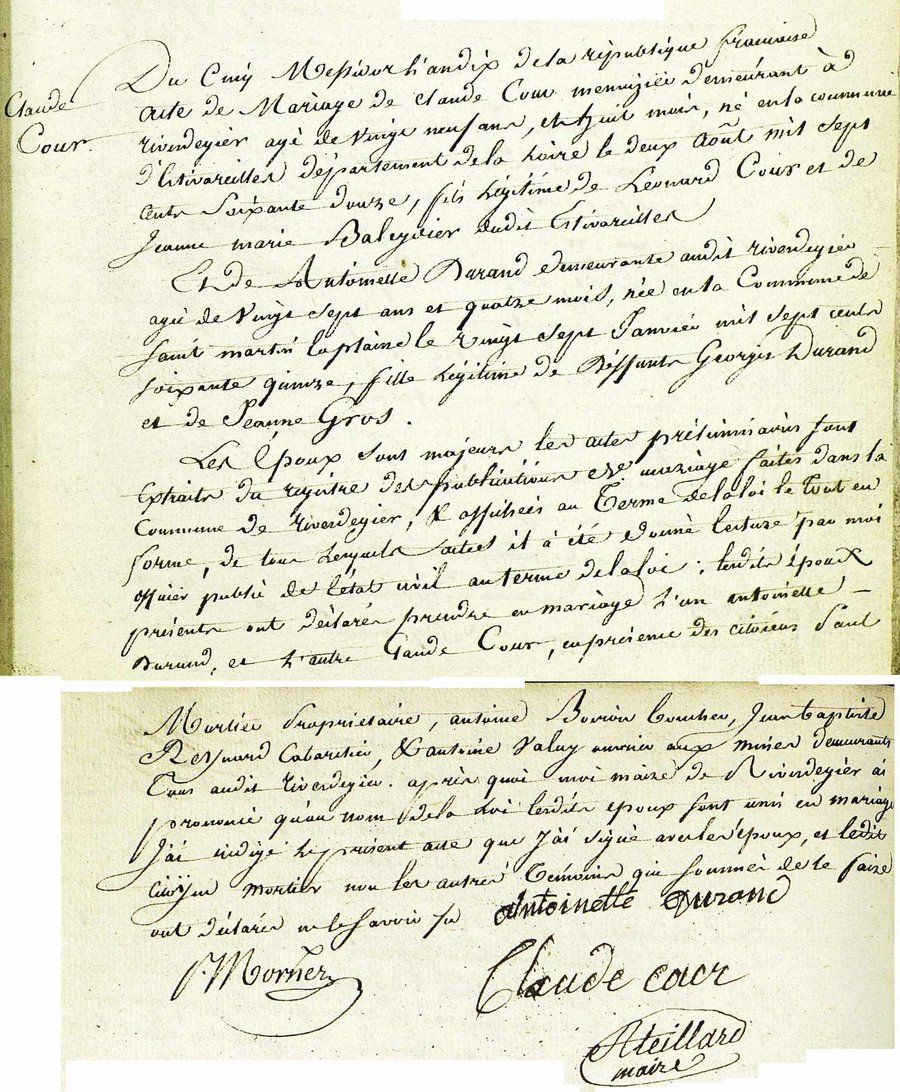 Claude
Cour
Du Cinq Messidor l'an dix de la république francaise
acte de Mariage de Claude Cour menuizié demeurant à
riverdegier agé de vingt neuf ans, et huit mois, né en la commune
d'Estivareilles département de la Loire le deux Août mil sept
cents Soixante douze, fils Légitime de Leonard Cour et de
Jeanne marie Baleyvier dudit Estivareilles
Et de Antoinette Durand demeurante audit riverdegier
agée de Vingt sept ans et quatre mois, née en la Commune de
saint martin laplaine le vingt sept Janvier mil sept cents
soixante quinze, fille Légitime de Deffunts Georges Durand
et de Jeanne Gros.
Les Époux sont majeurs les actes préliminaires sont
Extraits du registre des publications de mariage faites dans la
Commune de riverdegier, & affichées au Terme de la loi le tout en
forme, de tous lesquels actes il à été donné lecture par moi
officier public de l'état civil au terme de la loi ; lesdits époux
présents ont déclaré prendre en mariage L'un antoinette
Durand, et L'autre Claude Cour, en présence des citoiens Paul
Mortier Propriétaire, antoine Boiron Boucher, Jean baptiste
Reynard Cabaretier, & antoine Valuy ouvrier aux mines demeurants
Tous audit riverdegier. après quoi moi maire de Riverdegier ai
prononcé qu'au nom de la Loi lesdits époux sont unis en mariage
J'ai rédigé le présent acte que J'ai signé avec les époux, et ledit
citoyen mortier non les autres Témoins qui sommés de le faire
ont déclaré ne le savoir fe Antoinette Durand
P. Mortier
Claude cour
Ateillard
maire